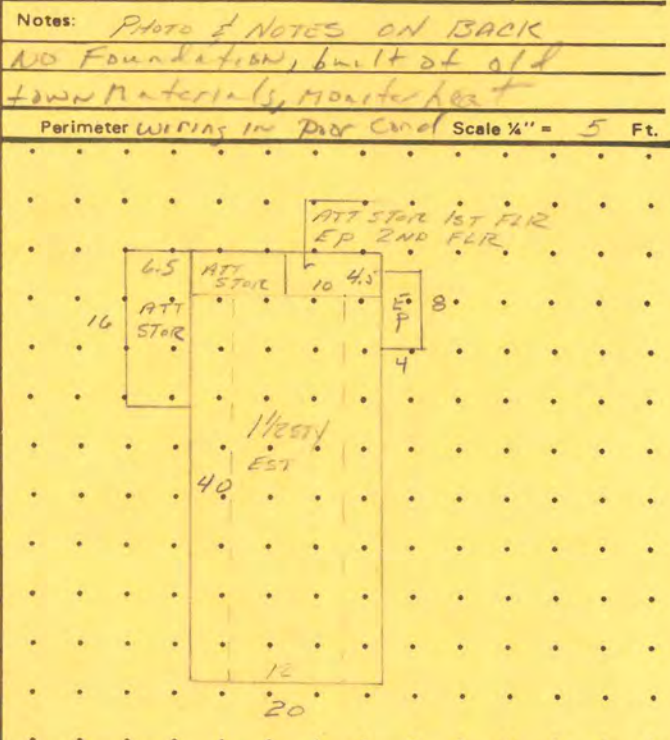 Notes: PHOTO & NOTES ON BACK
NO Foundation, built of old
town Materials, Monitor heat
Perimeter wiring in poor Cond Scale ¼" = 5 Ft.
ATT STOR 1ST FLR
EP 2ND FLR
6.5 ATT STOR 10 4.5
16 ATT STOR EP 8
4
1 1/2 STY
EST
40
12
20